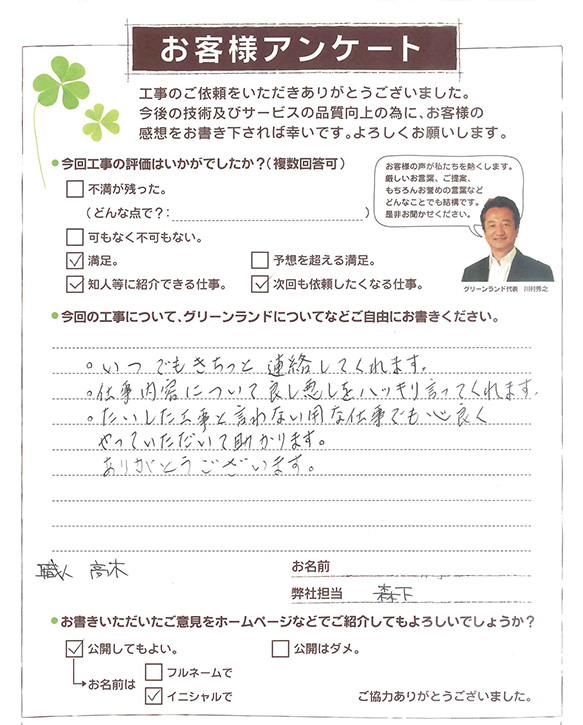 お客様アンケート
工事のご依頼をいただきありがとうございました。
今後の技術及びサービスの品質向上の為に、お客様の
感想をお書き下されば幸いです。よろしくお願いします。
今回工事の評価はいかがでしたか？(複数回答可)
お客様の声が私たちを熱くします。
厳しいお言葉、ご提案、
もちろんお誉めの言葉など
どんなことでも結構です。
是非お聞かせください。
グリーンランド代表 川村秀之
不満が残った。
(どんな点で？: )
可もなく不可もない。
満足。 予想を超える満足。
知人等に紹介できる仕事。 次回も依頼したくなる仕事。
今回の工事について、グリーンランドについてなどご自由にお書きください。
。いつでもきちっと連絡してくれます。
。仕事内容について良し悪しをハッキリ言ってくれます。
。たいした工事と言わない用な仕事でも心良く
やっていただいて助かります。
ありがとうございます。
職人 高木
お名前
弊社担当 森下
お書きいただいたご意見をホームページなどでご紹介してもよろしいでしょうか？
公開してもよい。 公開はダメ。
お名前は フルネームで
イニシャルで
ご協力ありがとうございました。